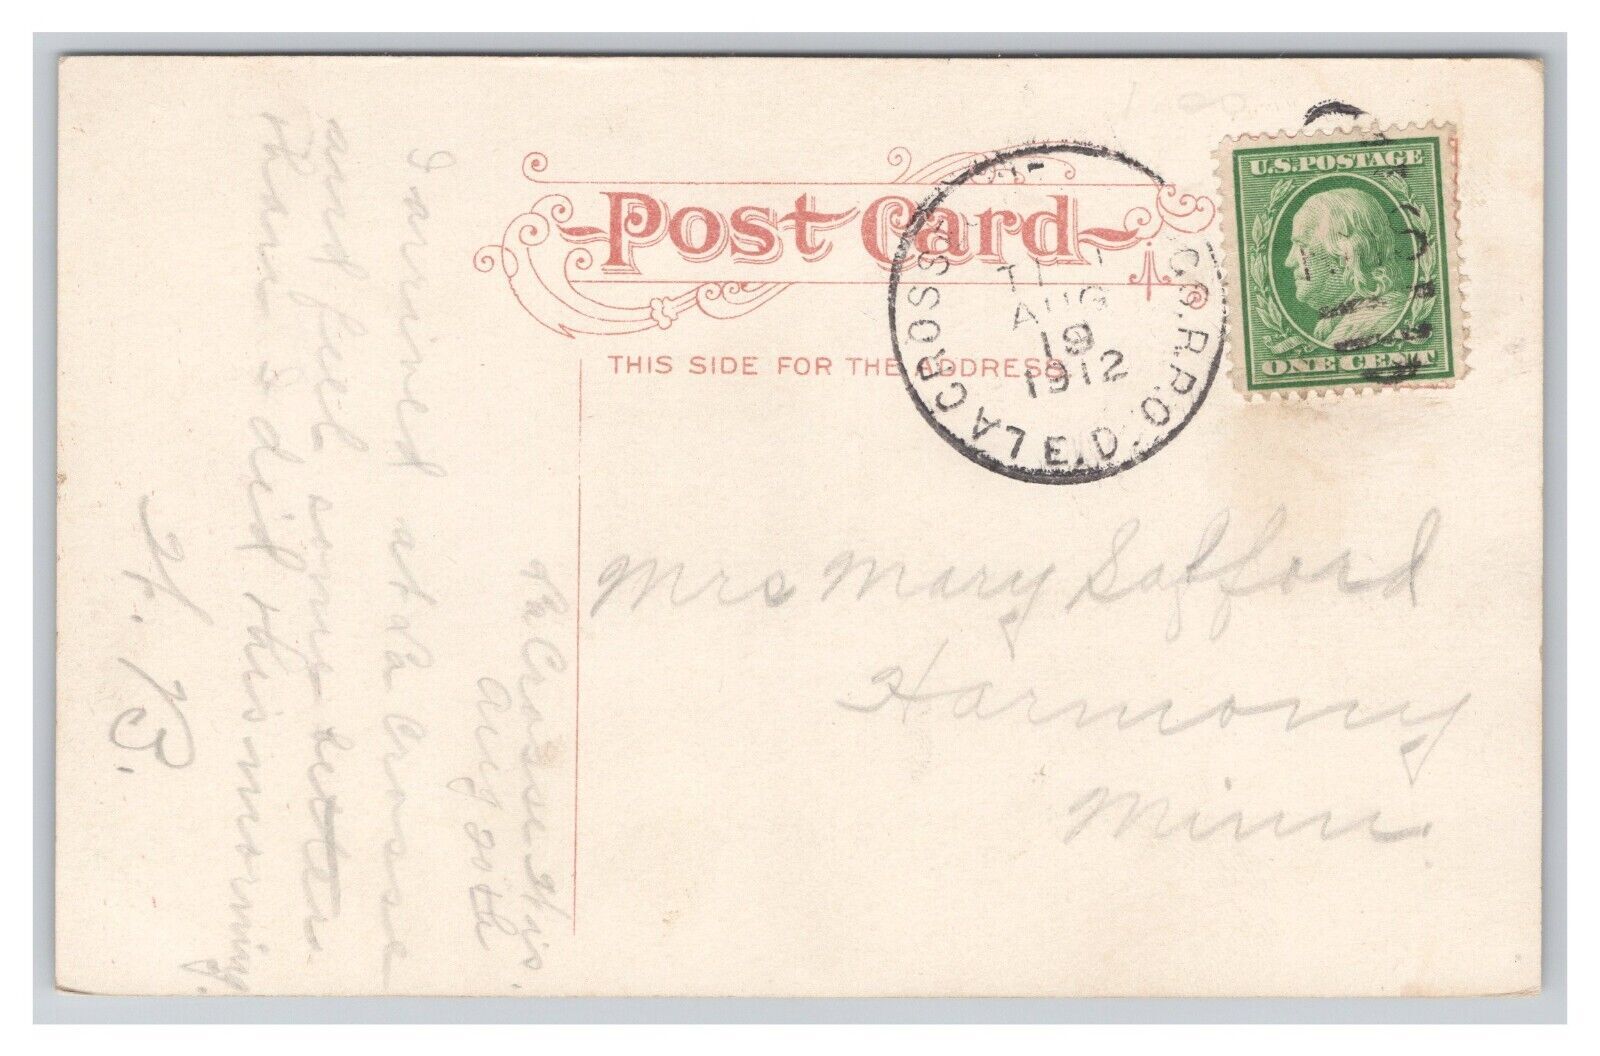 Post Card
THIS SIDE FOR THE ADDRESS.
LA CROSSE
C.R.P.O.
E.D.
AUG
19
1912
U.S. POSTAGE
ONE CENT
La Crosse Wis.
Aug 20th
I arrived at La Crosse
and feel some better
than I did this morning.
H. B.
Mrs Mary Safford
Harmony
Minn.